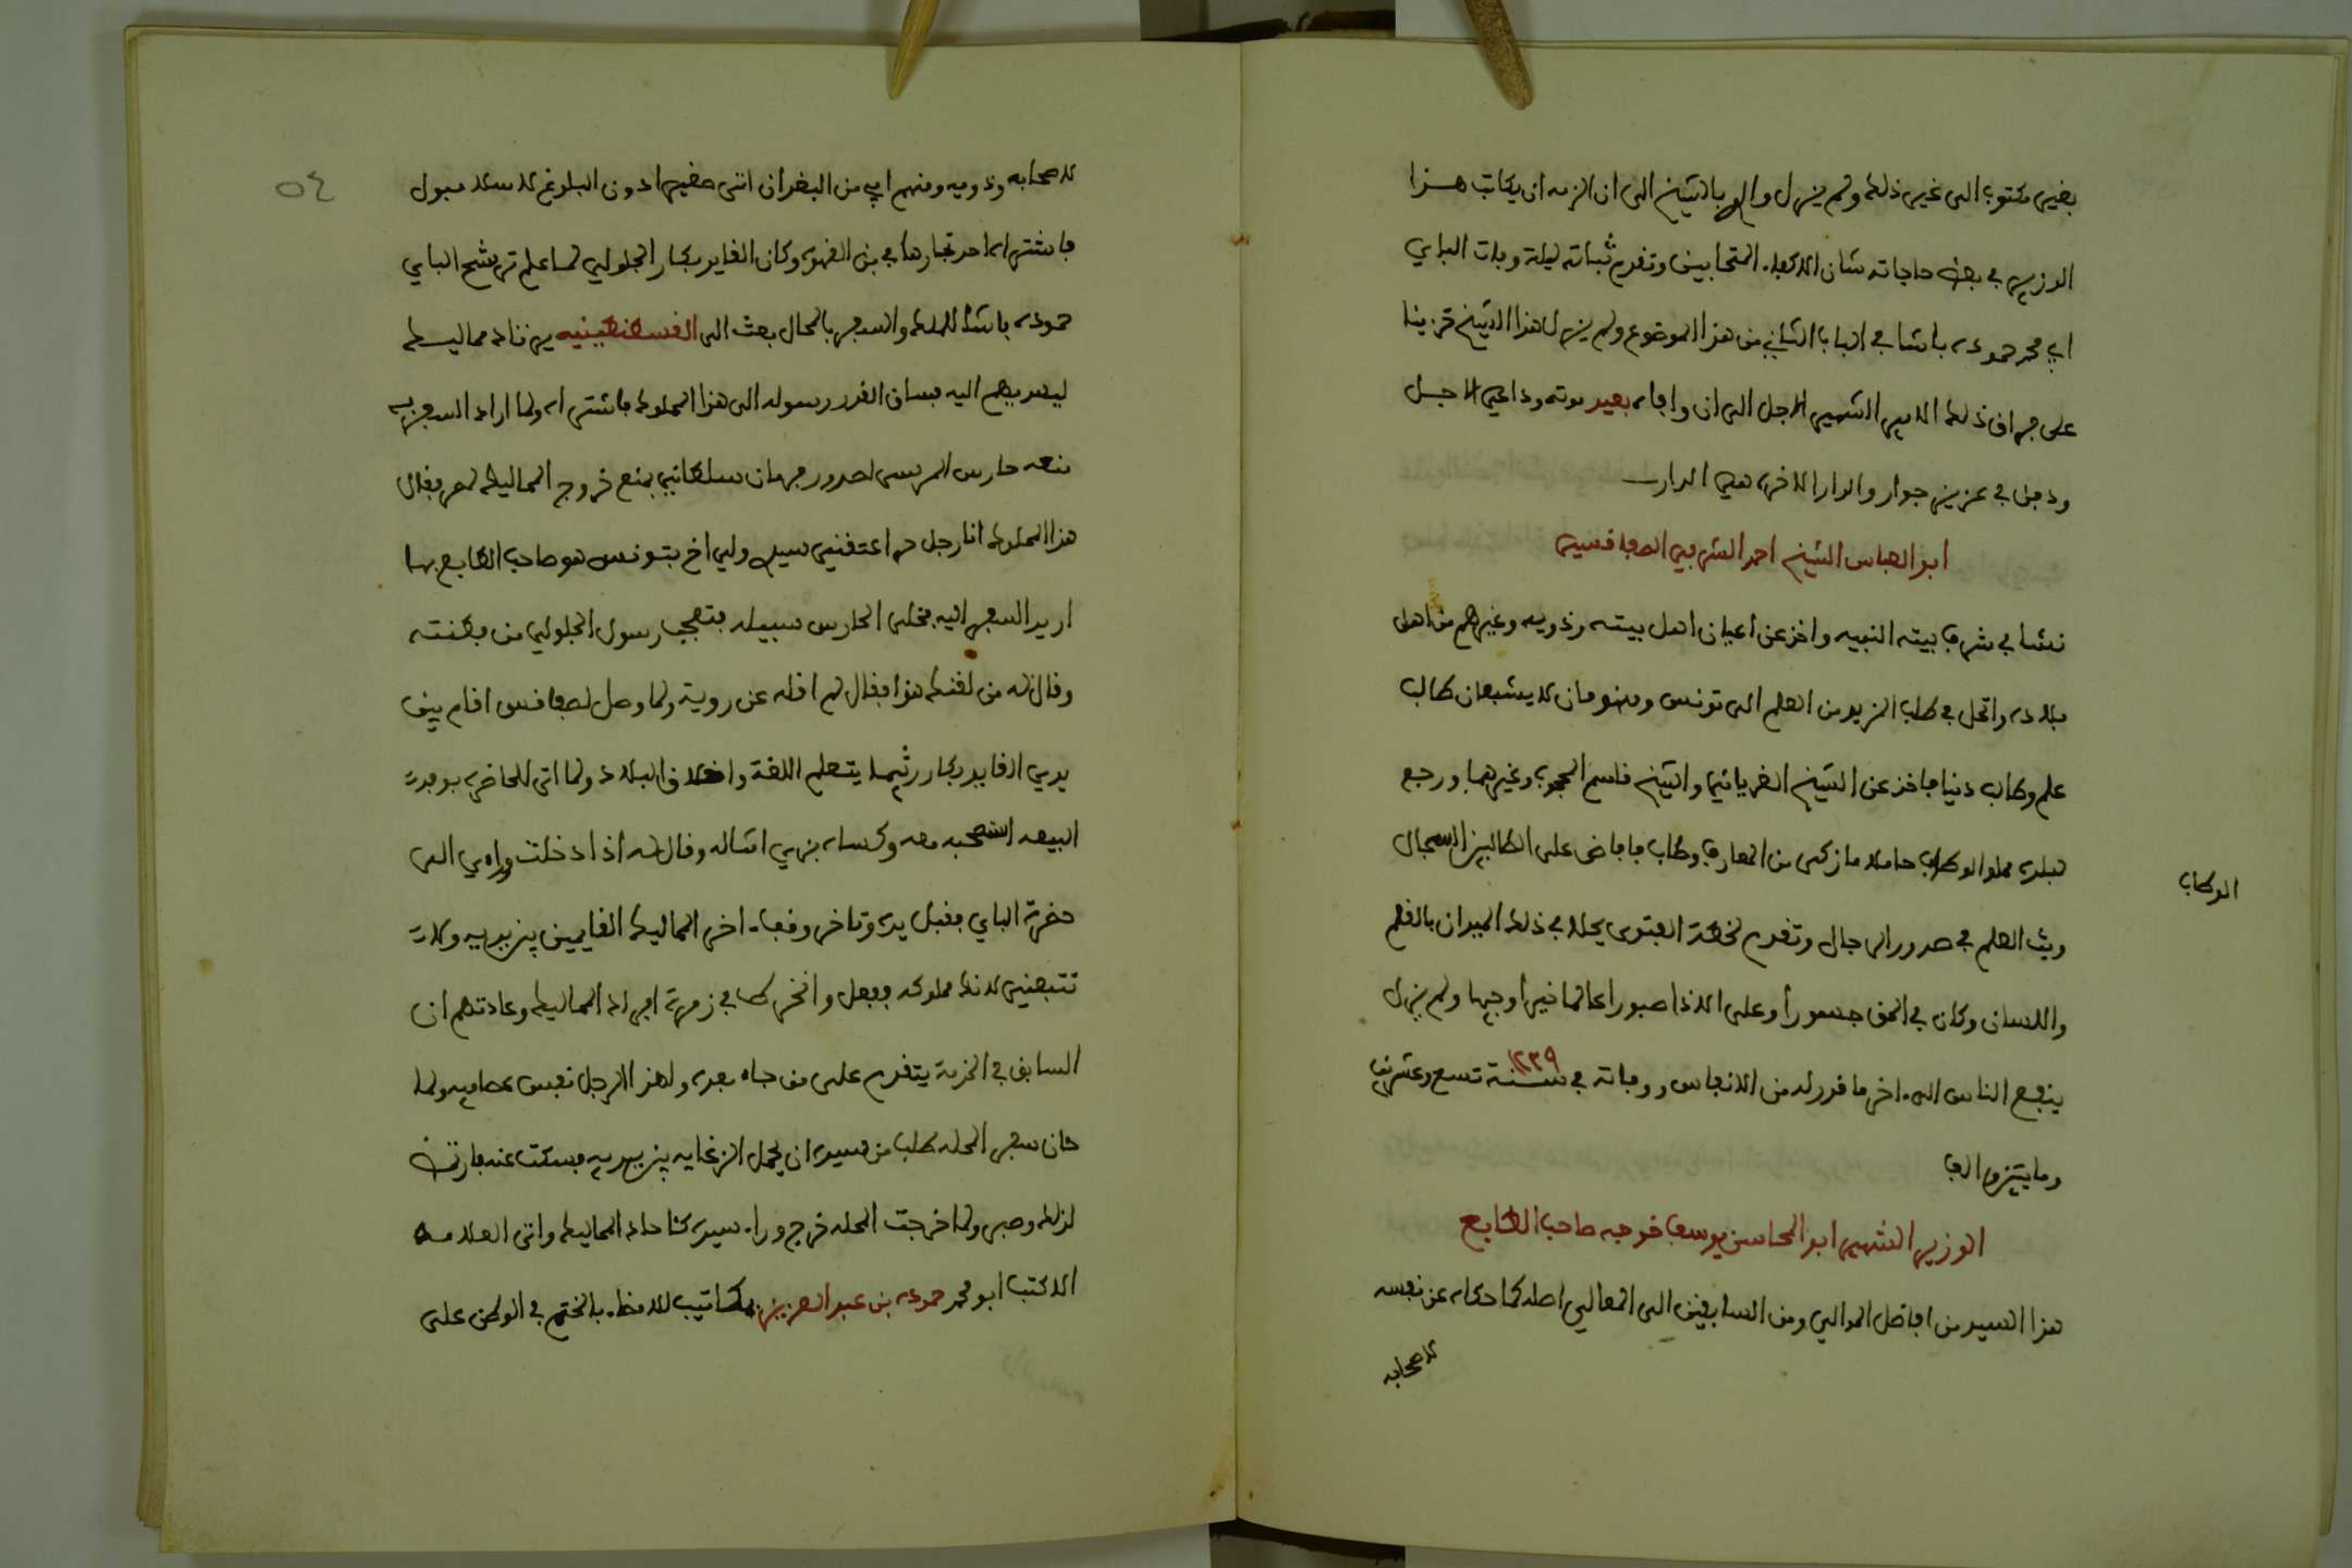 بغير مكتوب الى غير ذلك ولم يزل والي بالشيخ الى ان الزمه ان يكاتب هذا
الوزير في بعض حاجاته شان الاكفاء المتحابين وتقدم ثباته ليلة وفات الباي
ابي محمد حموده باشا في الباب الثاني من هذا الموضوع ولم يزل هذا الشيخ قرينا
على فراق ذلك الامير الشهير الاجل الى ان وافاه بعيد موته وداعي الاجل
ودفن في عزيز جوار والدار الاخرة هي الدار
ابو العباس الشيخ احمد الشرفي الصفاقسي
نشا في شرف بيته النبيه واخذ عن اعيان اهل بيته وذويه وغيرهم من اهل
بلاده وارتحل في طلب المزيد من العلم الى تونس ومنهومان لا يشبعان طالب
علم وطالب دنيا فاخذ عن الشيخ الغرياني والشيخ قاسم المحجوب وغيرهما ورجع
لبلده مملو الوطاب حاملا ما زكى من المعارف وطاب فافاض على الطالبين السجال
الوطاب
وبث العلم في صدور الرجال وتقدم لخطة الفتوى فجلا في ذلك الميدان بالقلم
واللسان وكان في الحق جسورا وعلى الاذا صبورا عالما خيرا وجيها ولم يزل
ينفع الناس الى اخر ما قدر له من الانفاس ووفاته في سنة ١٢٢٩ تسع وعشرين
ومايتين والف
الوزير الشهير ابو المحاسن يوسف خوجه صاحب الطابع
هذا السيد من افاضل الموالي ومن السابقين الى المعالي اصله كما حكاه عن نفسه
لاصحابه
٥٤
لاصحابه وذويه ومنهم ابي من البغدان اتى صغيرا دون البلوغ لاسلامبول
فاشتراه احد تجارها في بن القهوة وكان القايد بكار الجلولي لما علم ترشح الباي
حموده باشا للملك والسفر بالمحال بعث الى القسطنطينيه يرتاد مماليك
ليهديهم اليه فساق القدر رسوله الى هذا المملوك فاشتراه ولما اراد السفر به
منعه حارس المرسى لصدور فرمان سلطاني بمنع خروج المماليك لمصر فقال
هذا المملوك انا رجل حر اعتقني سيدي ولي اخ بتونس هو صاحب الطابع بها
اريد السفر اليه فخلى الحارس سبيله فتعجب رسول الجلولي من فطنته
وقال له من لقنك هذا فقال لم اقله عن روية ولما وصل لصفاقس اقام بين
يدي القايد بكار ريثما يتعلم اللغة واخلاق البلاد ولما اتى للحاضرة بوفد
البيعه استصحبه معه وكساه بزي امثاله وقال له اذا دخلت وراءي الى
حضرة الباي فقبل يده وتاخر وقف اخر المماليك القايمين بين يديه ولا
تتبعني لانك مملوكه ففعل وانخرط في زمرة افراد المماليك وعادتهم ان
السابق في الخدمة يتقدم على من جاء بعده ولهذا الرجل نفس عصاميه ولما
حان سفر المحله طلب من سيده ان يجعل له غايه بين يديه فسكت عنه فارتاض
لذلك وصبر ولما خرجت المحله خرج وراء سيده كاحاد المماليك واتى العلامه
الاكتب ابو محمد حموده بن عبد العزيز بمكاتيب للامضاء بالختم في الوطن على